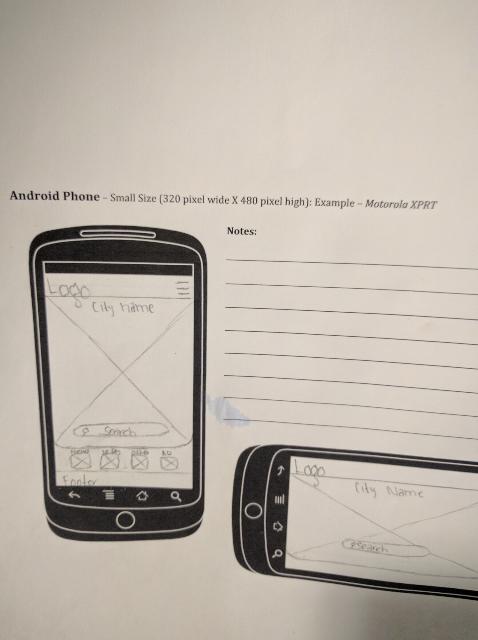 Android Phone – Small Size (320 pixel wide X 480 pixel high): Example – Motorola XPRT
Notes:
Logo
City name
Search
Footer
Logo
City Name
Search